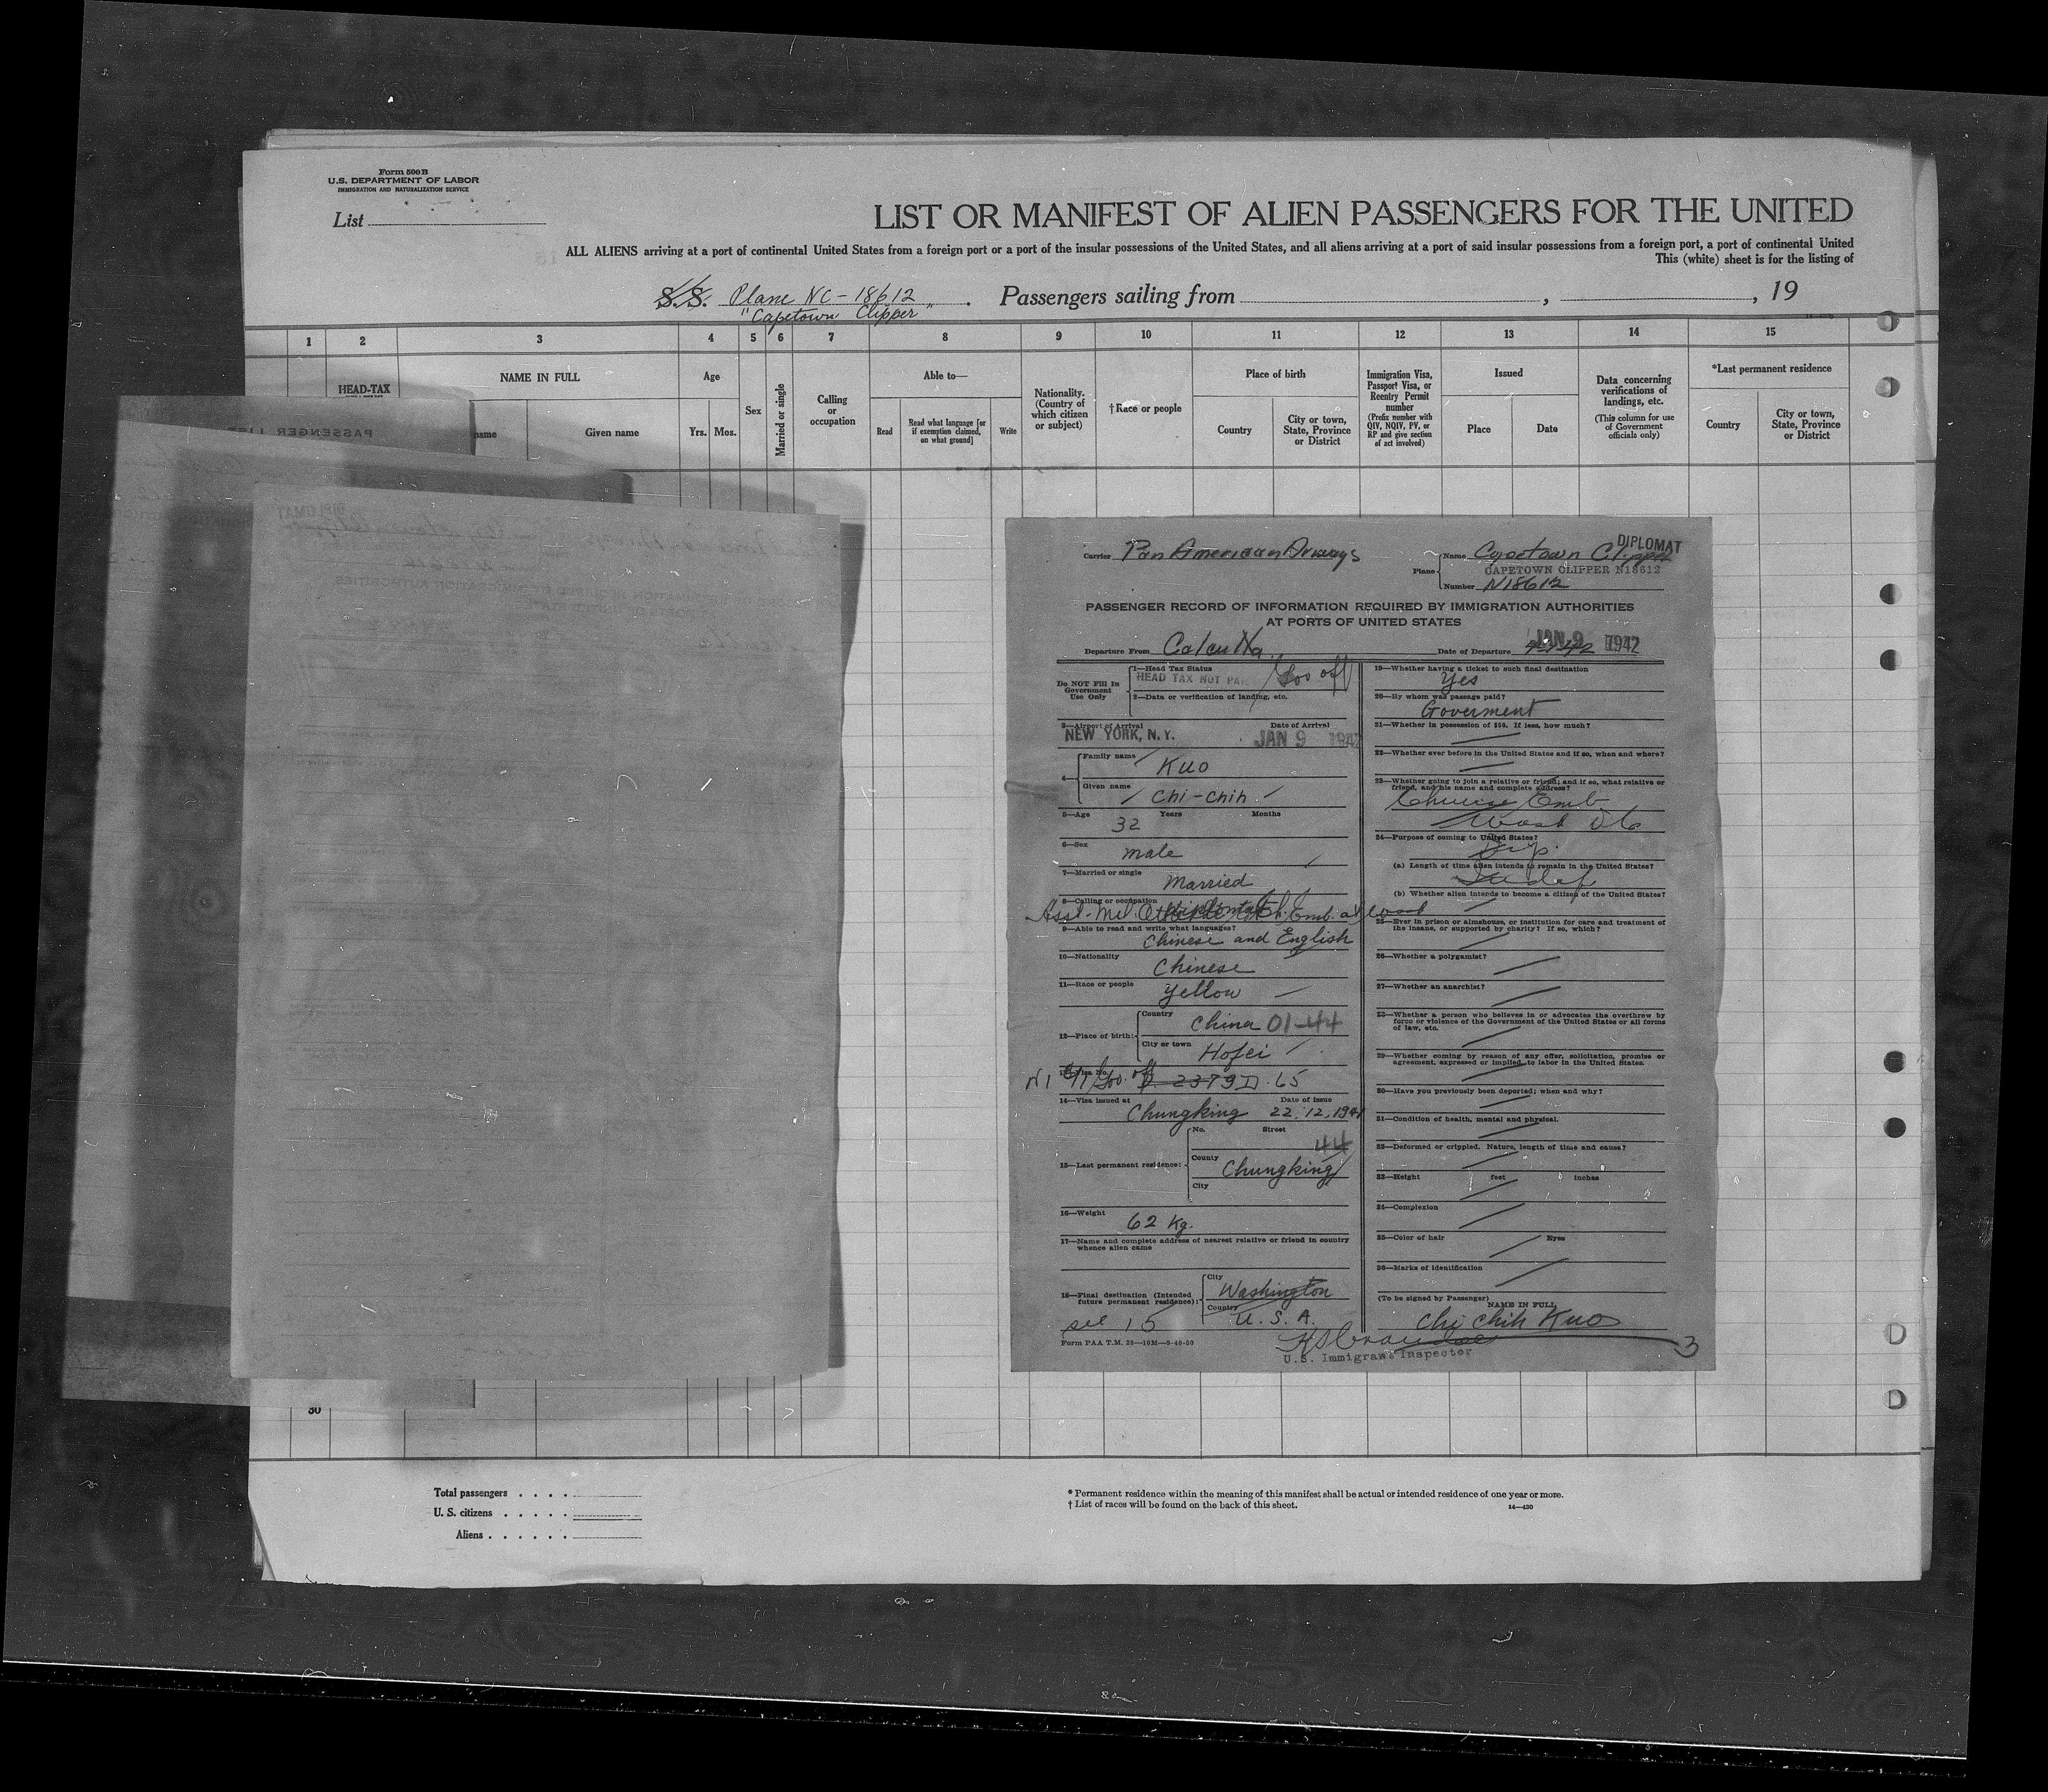 Form 500 B
U.S. DEPARTMENT OF LABOR
IMMIGRATION AND NATURALIZATION SERVICE
List
LIST OR MANIFEST OF ALIEN PASSENGERS FOR THE UNITED
ALL ALIENS arriving at a port of continental United States from a foreign port or a port of the insular possessions of the United States, and all aliens arriving at a port of said insular possessions from a foreign port, a port of continental United
This (white) sheet is for the listing of
S.S. Plane NC-18612 . Passengers sailing from , , 19
"Capetown Clipper"
1 2 3 4 5 6 7 8 9 10 11 12 13 14 15
HEAD-TAX
NAME IN FULL
name
Given name
Age
Yrs. Mos.
Sex
Married or single
Calling or occupation
Able to—
Read
Read what language [or if exemption claimed, on what ground]
Write
Nationality. (Country of which citizen or subject)
†Race or people
Place of birth
Country
City or town, State, Province or District
Immigration Visa, Passport Visa, or Reentry Permit number
(Prefix number with QIV, NQIV, PV, or RP and give section of act involved)
Issued
Place
Date
Data concerning verifications of landings, etc.
(This column for use of Government officials only)
*Last permanent residence
Country
City or town, State, Province or District
PASSENGER LIST
DIPLOMAT
Carrier Pan American Airways
Plane Name Capetown Clipper
CAPETOWN CLIPPER N18612
Number N18612
PASSENGER RECORD OF INFORMATION REQUIRED BY IMMIGRATION AUTHORITIES
AT PORTS OF UNITED STATES
Departure From Calcutta
Date of Departure JAN 9 1942
Do NOT Fill In Government Use Only
1—Head Tax Status
HEAD TAX NOT PAID
2—Data or verification of landing, etc.
3—Airport of Arrival Date of Arrival
NEW YORK, N.Y. JAN 9 1942
4—
Family name Kuo
Given name Chi-Chih
5—Age 32 Years Months
6—Sex male
7—Married or single Married
8—Calling or occupation
Asst. Mil. Attache
9—Able to read and write what languages?
Chinese and English
10—Nationality Chinese
11—Race or people Yellow
12—Place of birth:
Country China 01-44
City or town Hofei
2379 D.65
14—Visa issued at Date of issue
Chungking 22.12.1941
15—Last permanent residence:
No. Street
44
County Chungking
City
16—Weight 62 Kg.
17—Name and complete address of nearest relative or friend in country whence alien came
18—Final destination (Intended future permanent residence):
City Washington
Country U.S.A.
see 15
Form PAA T.M. 28—10M—9-40-50
19—Whether having a ticket to such final destination
Yes
20—By whom was passage paid?
Goverment
21—Whether in possession of $50. If less, how much?
22—Whether ever before in the United States and if so, when and where?
23—Whether going to join a relative or friend; and if so, what relative or friend, and his name and complete address?
Chinese Emb
Wash DC
24—Purpose of coming to United States?
Dip.
(a) Length of time alien intends to remain in the United States?
Indef
(b) Whether alien intends to become a citizen of the United States?
25—Ever in prison or almshouse, or institution for care and treatment of the insane, or supported by charity? If so, which?
26—Whether a polygamist?
27—Whether an anarchist?
28—Whether a person who believes in or advocates the overthrow by force or violence of the Government of the United States or all forms of law, etc.
29—Whether coming by reason of any offer, solicitation, promise or agreement, expressed or implied, to labor in the United States.
30—Have you previously been deported; when and why?
31—Condition of health, mental and physical.
32—Deformed or crippled. Nature, length of time and cause?
33—Height feet inches
34—Complexion
35—Color of hair Eyes
36—Marks of identification
(To be signed by Passenger)
NAME IN FULL
Chi Chih Kuo
3
U.S. Immigrant Inspector
30
Total passengers
U. S. citizens
Aliens
* Permanent residence within the meaning of this manifest shall be actual or intended residence of one year or more.
† List of races will be found on the back of this sheet.
14—430